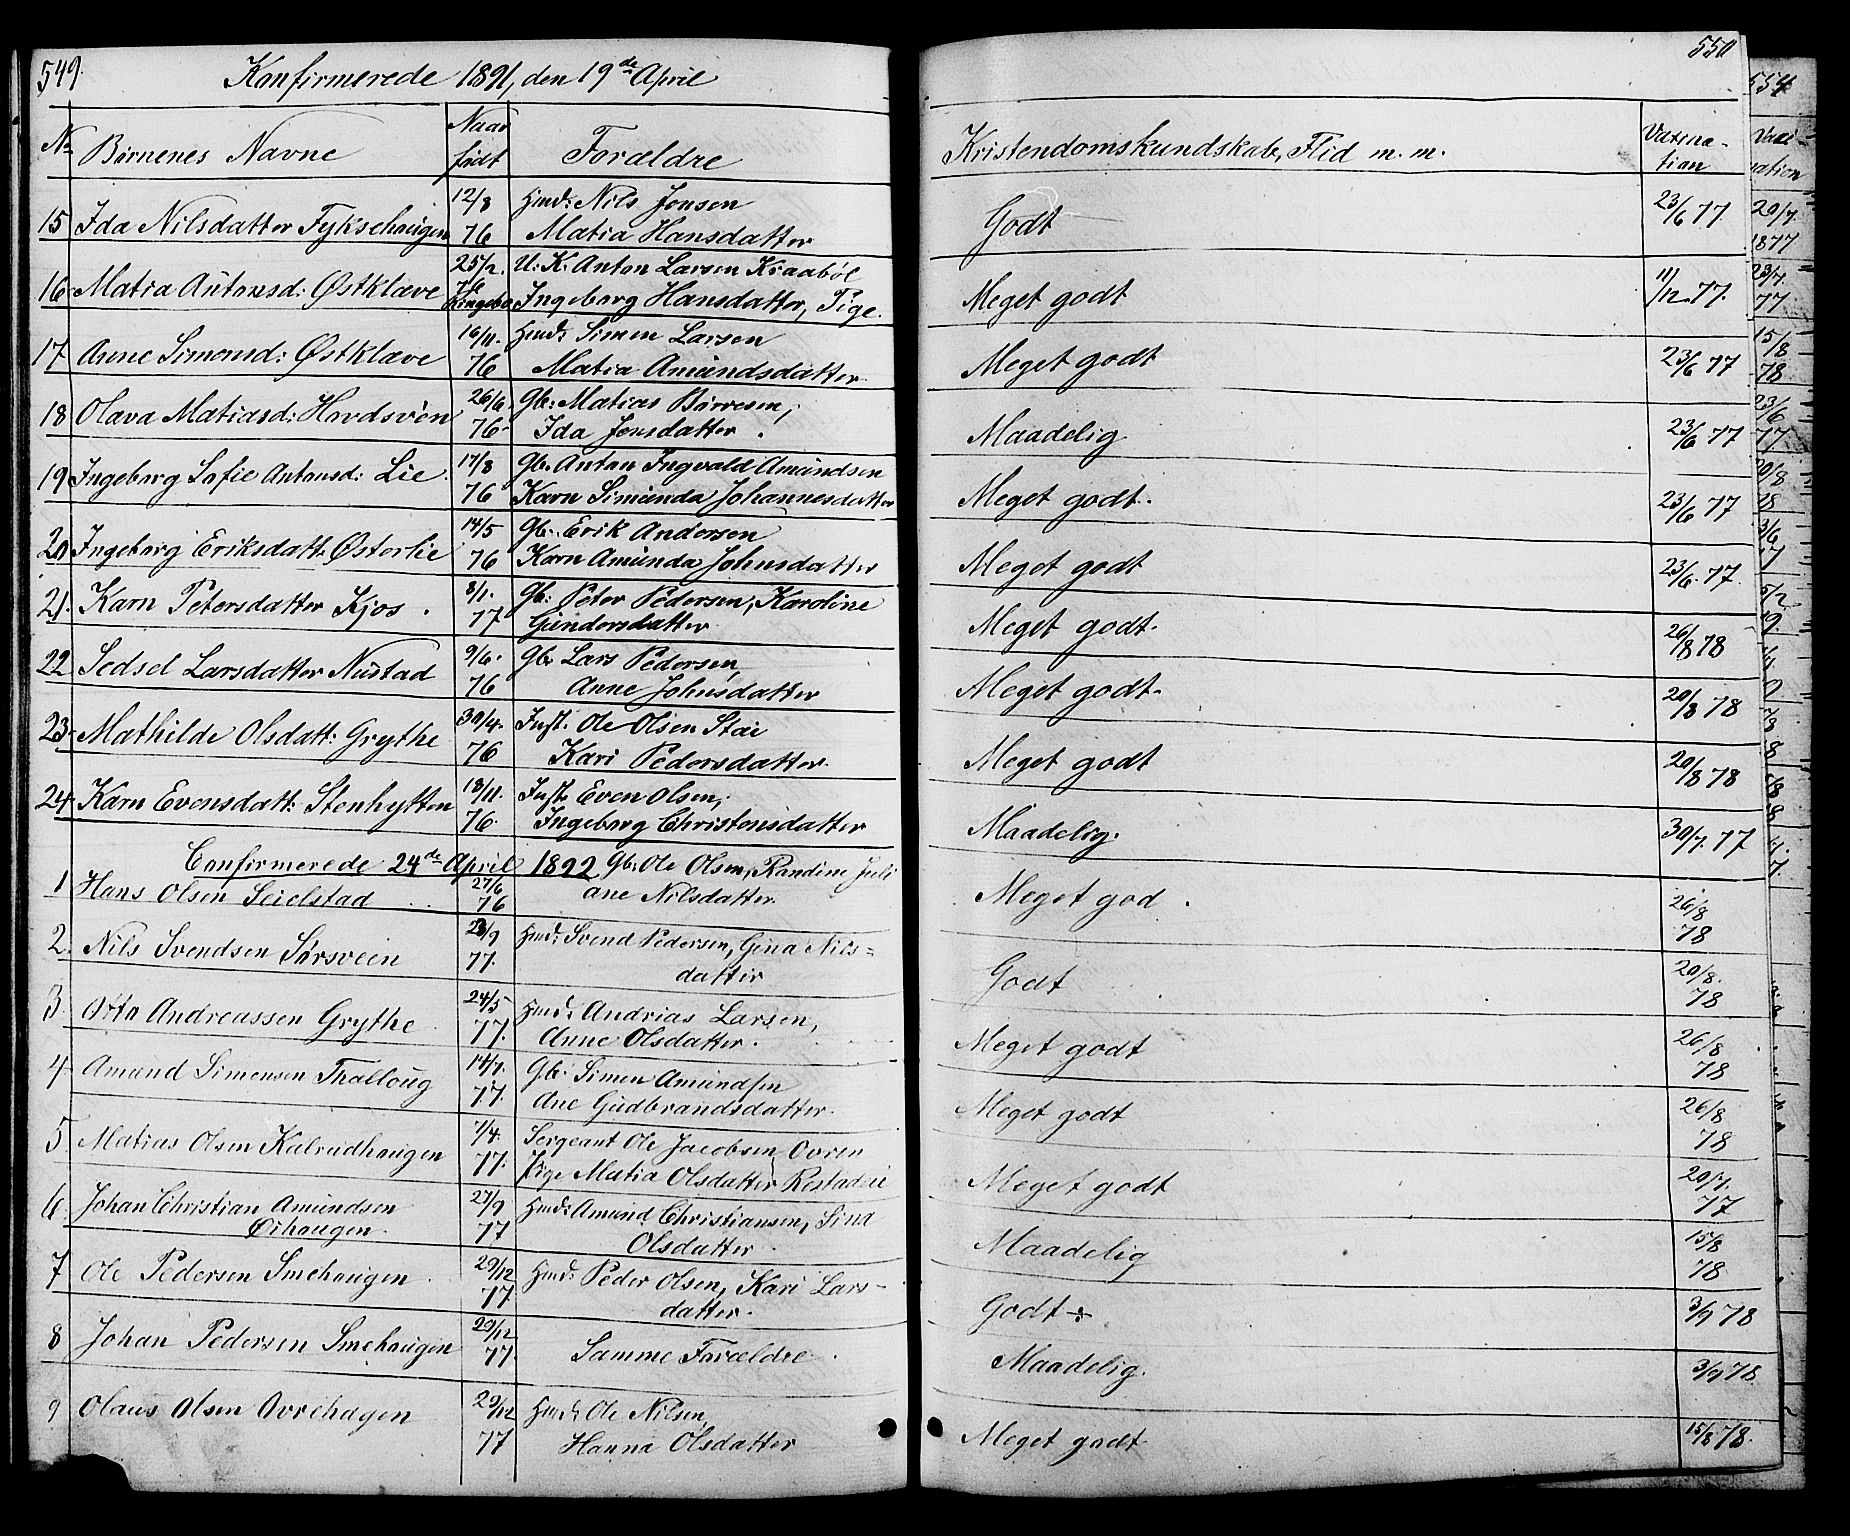 549.
Konfirmerede 1891, den 19de April
No
Børnenes Navne
Naar
født
Forældre
15 Ida Nilsdatter Fyksehaugen 12/8 76 Hmd: Nils Jensen
Matia Hansdatter
16 Matia Antonsd: Østklæve 25/2. 76 Ringebo U. K. Anton Larsen Kraabøl
Ingeborg Hansdatter, Pige.
17 Anne Simonsd: Østklæve 16/11. 76 Hmd: Simen Larsen
Matia Amundsdatter
18 Olava Matiasd: Hovdsvéen 26/6. 76 Gb: Matias Børresen,
Ida Jensdatter.
19 Ingeborg Sofie Antonsd: Lie 17/8 76 Gb. Anton Ingvald Amundsen
Karn Simunda Johannesdatter
20 Ingeborg Eriksdatt: Østerlie 14/5 76 Gb. Erik Andersen
Karn Amunda Johnsdatter
21. Karn Petersdatter Kjos. 8/1. 77 Gb: Peter Pedersen, Karoline
Gundersdatter
22 Sedsel Larsdatter Nustad 9/6. 76 Gb. Lars Pedersen,
Anne Johnsdatter
23. Mathilde Olsdatt: Grythe 30/4. 76 Inst. Ole Olsen Stai
Kari Pedersdatter.
24. Karn Evensdatt: Stenhytten 18/11. 76. Inst. Even Olsen,
Ingeborg Christensdatter
Confirmerede 24de April 1892
1 Hans Olsen Seielstad 27/6 76 Gb: Ole Olsen, Randine Juli
ane Nilsdatter
2. Nils Svendsen Sørsveen 23/9 77. Hmd: Svend Pedersen, Gina Nils=
datter
3. Otto Andreassen Grythe 24/5 77. Hmd: Andrias Larsen,
Anne Olsdatter.
4 Amund Simensen Thalloug 14/7. 77. Gb. Simen Amundsen
Ane Gudbrandsdatter.
5 Matias Olsen Kalrudhaugen 7/4. 77. Sergeant Ole Jacobsen Ovren
Pige Matia Olsdatter
6. Johan Christian Amundsen
Øihaugen. 27/9 77 Hmd: Amund Christiansen, Sina
Olsdatter
7 Ole Pedersen Smehaugen 29/12 77. Hmd: Peder Olsen, Kari Lars-
datter.
8 Johan Pedersen Smehaugen 29/12 77. Samme Forældre.
9 Olaus Olsen Ovrehagen 29/12 77 Hmd: Ole Nilsen,
Hanna Olsdatter
550
Kristendomskundskab, Flid m. m.
Vaxina-
tion
Godt 23/6 77
Meget godt 11/12. 77.
Meget godt 23/6 77
Maadelig 23/6 77
Meget godt. 23/6 77
Meget godt 23/6. 77.
Meget godt. 26/8 78
Meget godt. 20/8 78
Meget godt 20/8 78
Maadelig. 30/7. 77
Meget god. 26/8 78
Godt 20/8. 78
Meget godt 26/8 78
Meget godt 26/8 78
Meget godt 20/7. 77
Maadelig 15/8 78
Godt 3/9 78
Maadelig. 3/9 78.
Meget godt 15/8 78.
554
Vaci-
nation
20/7
1877
23/7.
77
15/8
78
23/6
77
20/8